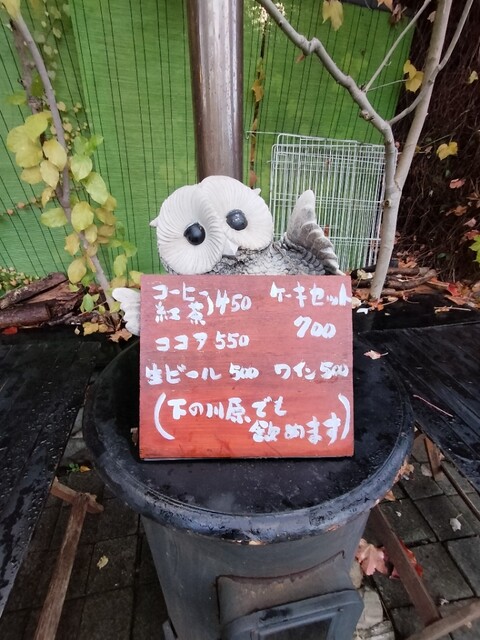 コーヒー
紅茶 } 450 ケーキセット
700
ココア 550
生ビール 500 ワイン 500
(下の川原でも
飲めます)